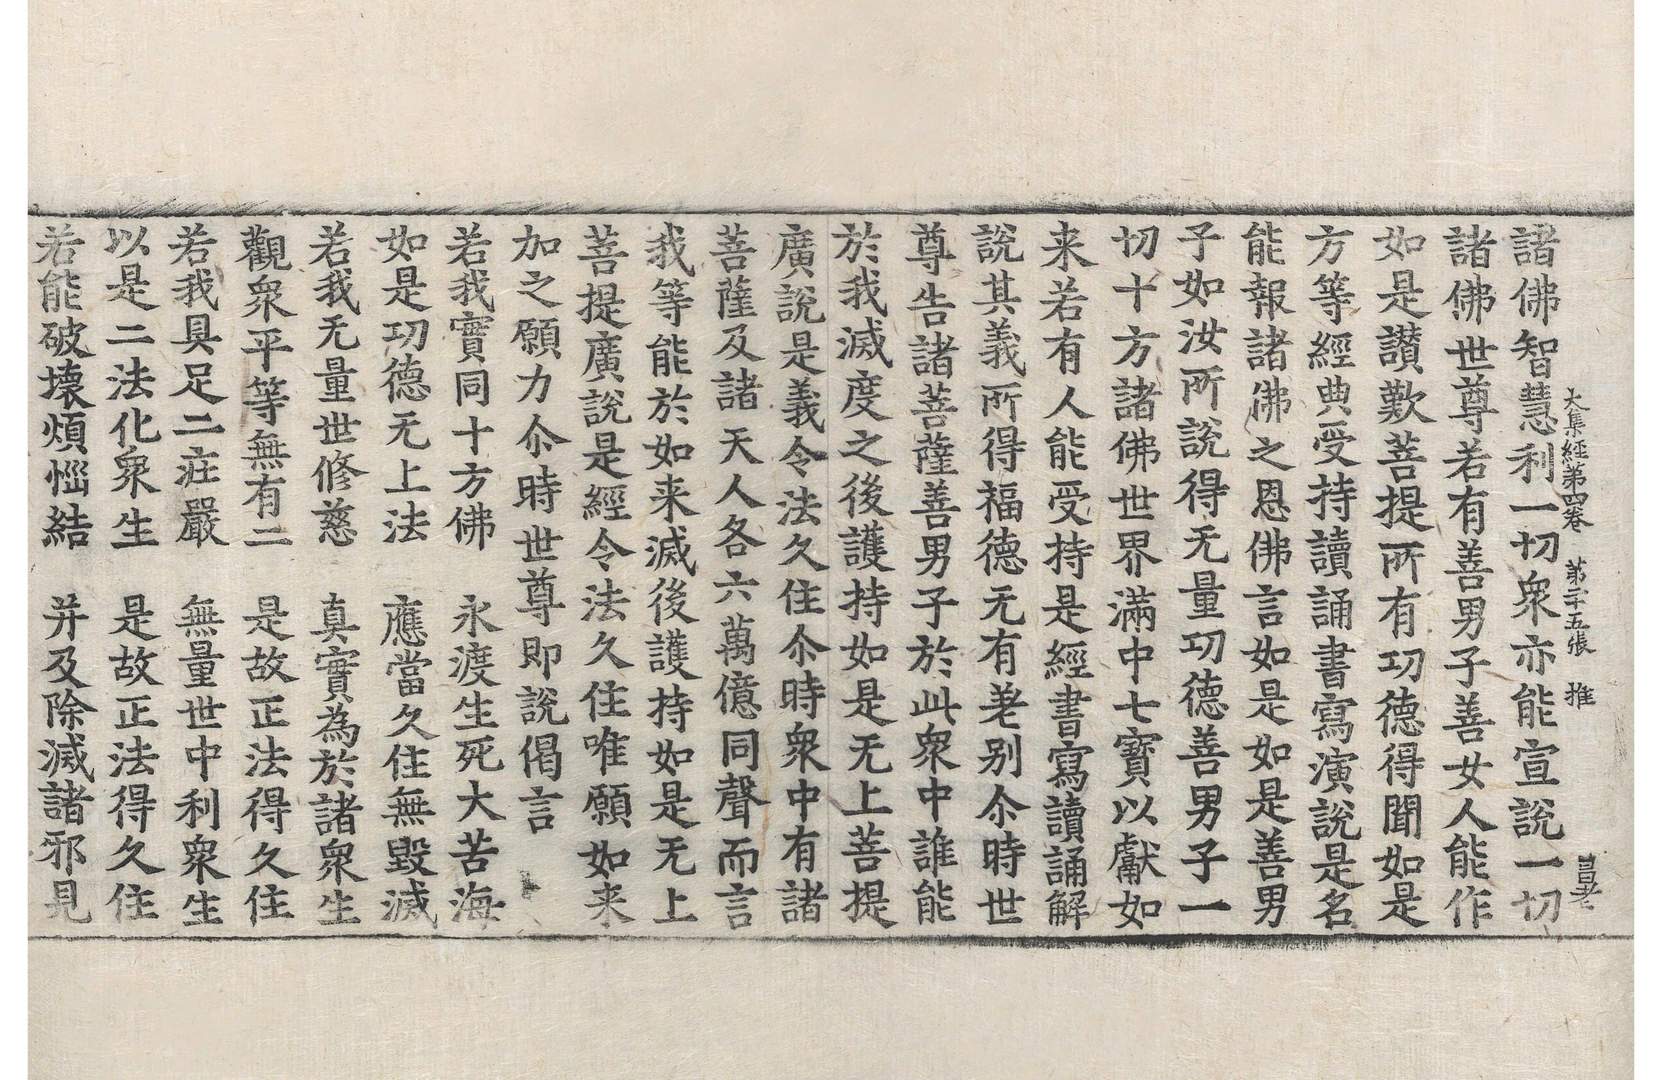 大集經第四卷 第二十五張 推 昌老
諸佛智慧利一切衆亦能宣說一切
諸佛世尊若有善男子善女人能作
如是讃歎菩提所有功德得聞如是
方等經典受持讀誦書寫演說是名
能報諸佛之恩佛言如是如是善男
子如汝所說得无量功德善男子一
切十方諸佛世界滿中七寶以獻如
来若有人能受持是經書寫讀誦解
說其義所得福德无有差别尒時世
尊告諸菩薩善男子於此衆中誰能
於我滅度之後護持如是无上菩提
廣說是義令法久住尒時衆中有諸
菩薩及諸天人各六萬億同聲而言
我等能於如来滅後護持如是无上
菩提廣說是經令法久住唯願如来
加之願力尒時世尊即說偈言
若我實同十方佛 永渡生死大苦海
如是功德无上法 應當久住無毀滅
若我无量世修慈 真實為於諸衆生
觀衆平等無有二 是故正法得久住
若我具足二莊嚴 無量世中利衆生
以是二法化衆生 是故正法得久住
若能破壞煩惱結 并及除滅諸邪見